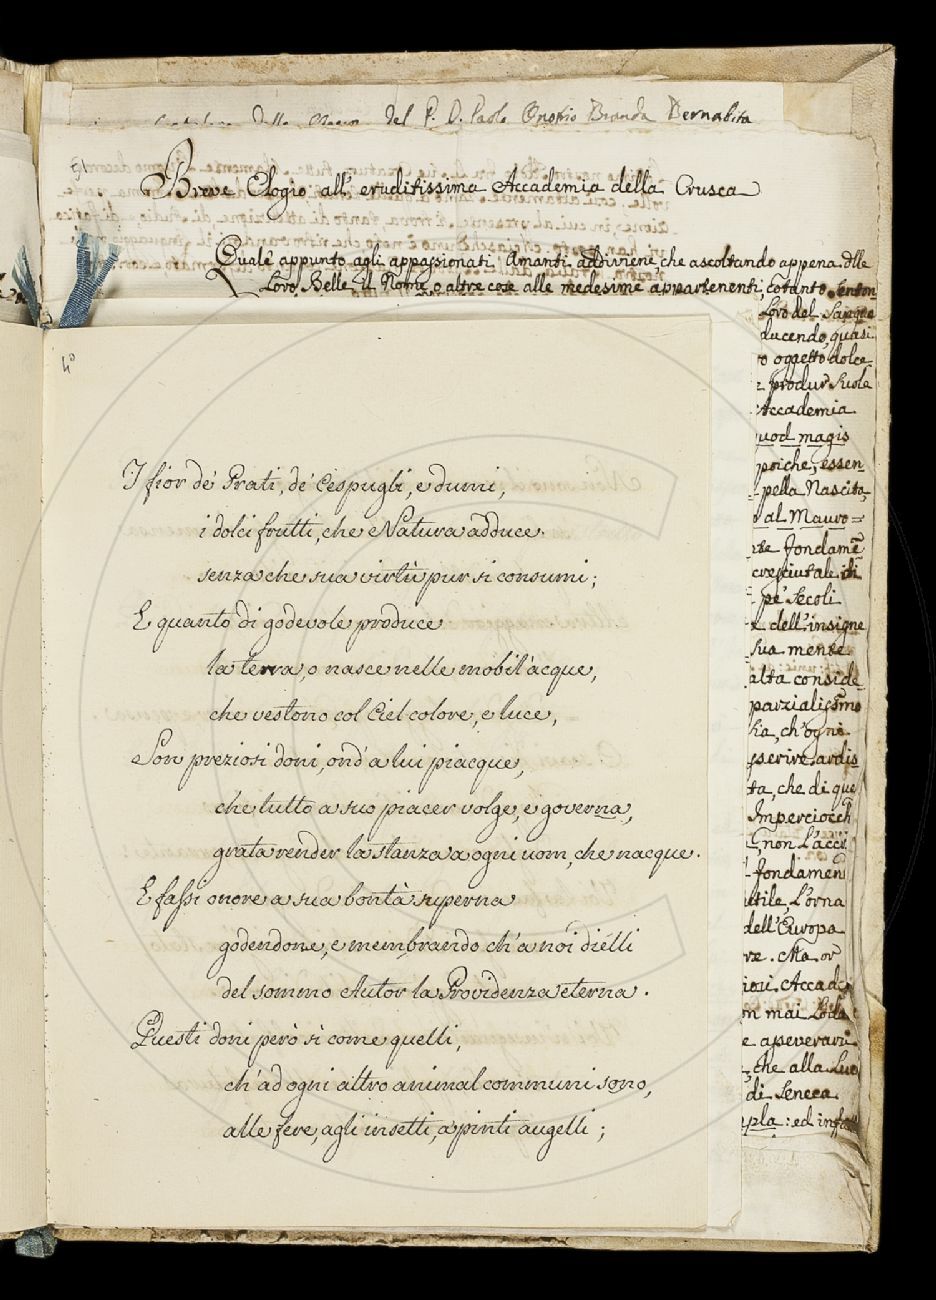 del P. D. Paolo Onofrio Branda Bernabita
51
Breve Elogio all' eruditissima Accademia della Crusca
Quale appunto agli appassionati Amanti addiviene che ascoltando appena dlle
Loro Belle il Nome o altre cose alle medesime appartenenti, cotanto senton
Loro del Sangue
ducendo, quasi
o oggetto dolce
produr Suole
Accademia
quod magis
priche, essen
pella Nascita,
al Mauro=
te fondamē
cresciutale di
pe' Secoli
dell'insigne
sua mente
alta conside
parzialissimo
sia, ch'ogni
sserire ardis
ta, che di que
Imperciocch
, non L'acci
fondamen
utile, L'orna
dell'Europa
re. Ma or
ioui Accad
n mai Lod
e asseverari
, che alla Luc
di Seneca
pla: ed infat
4º
I fior de' Prati, de' Cespugli, e dumi,
i dolci frutti, che Natura adduce
senza che sua virtù pur si consumi;
E quanto di godevole produce
la terra, o nasce nelle mobil'acque,
che vestono col Ciel colore, e luce,
Son preziosi doni, ond'a lui piacque,
che tutto a suo piacer volge, e governa,
grata render la stanza a ogni uom, che nacque.
E fassi onore a sua bontà superna
godendone, e membrando ch'a noi diélli
del sommo Autor la Providenza eterna.
Questi doni però sì come quelli,
ch'ad ogni altro animal communi sono,
alle fere, agli insetti, a pinti augelli;